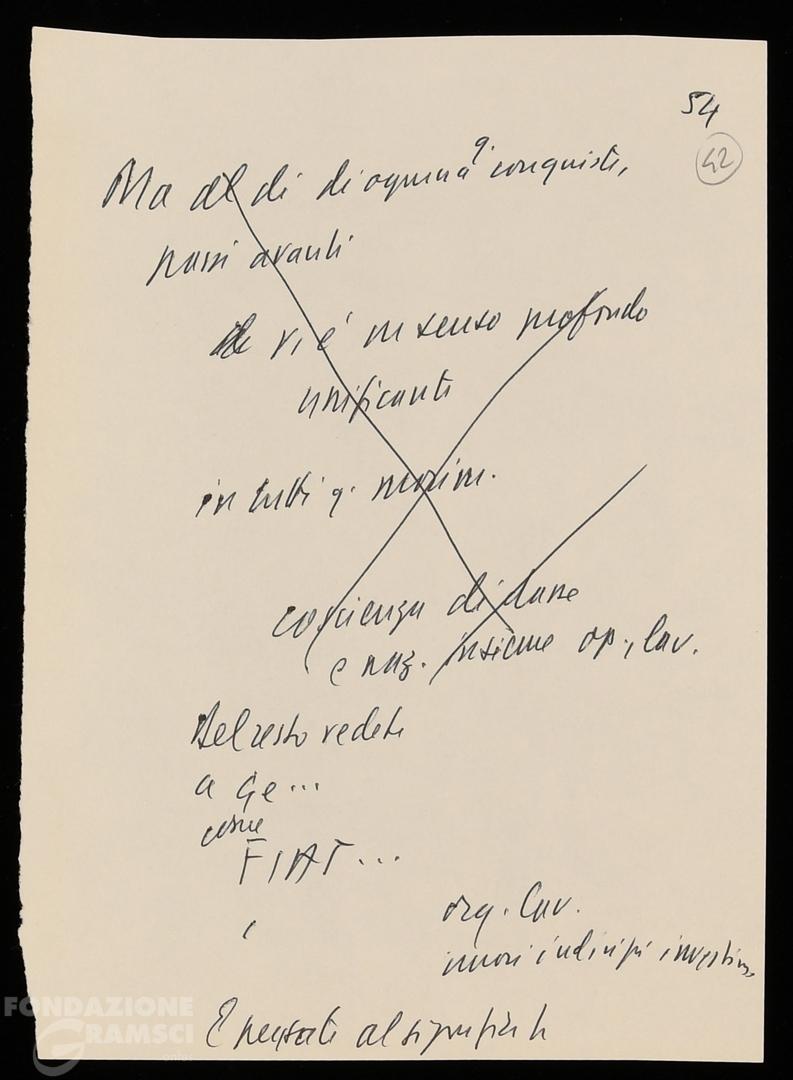 54
42
Ma al di di ognuna q. conquiste,
passi avanti
vi è un senso profondo
unificante
in tutti q. movim.
coscienza di classe
e naz. insieme op., lav.
Del resto vedete
a Ge...
come
FIAT...
org. lav.
nuovi indirizzi investim.
E pensate al significato
FONDAZIONE
GRAMSCI
onlus